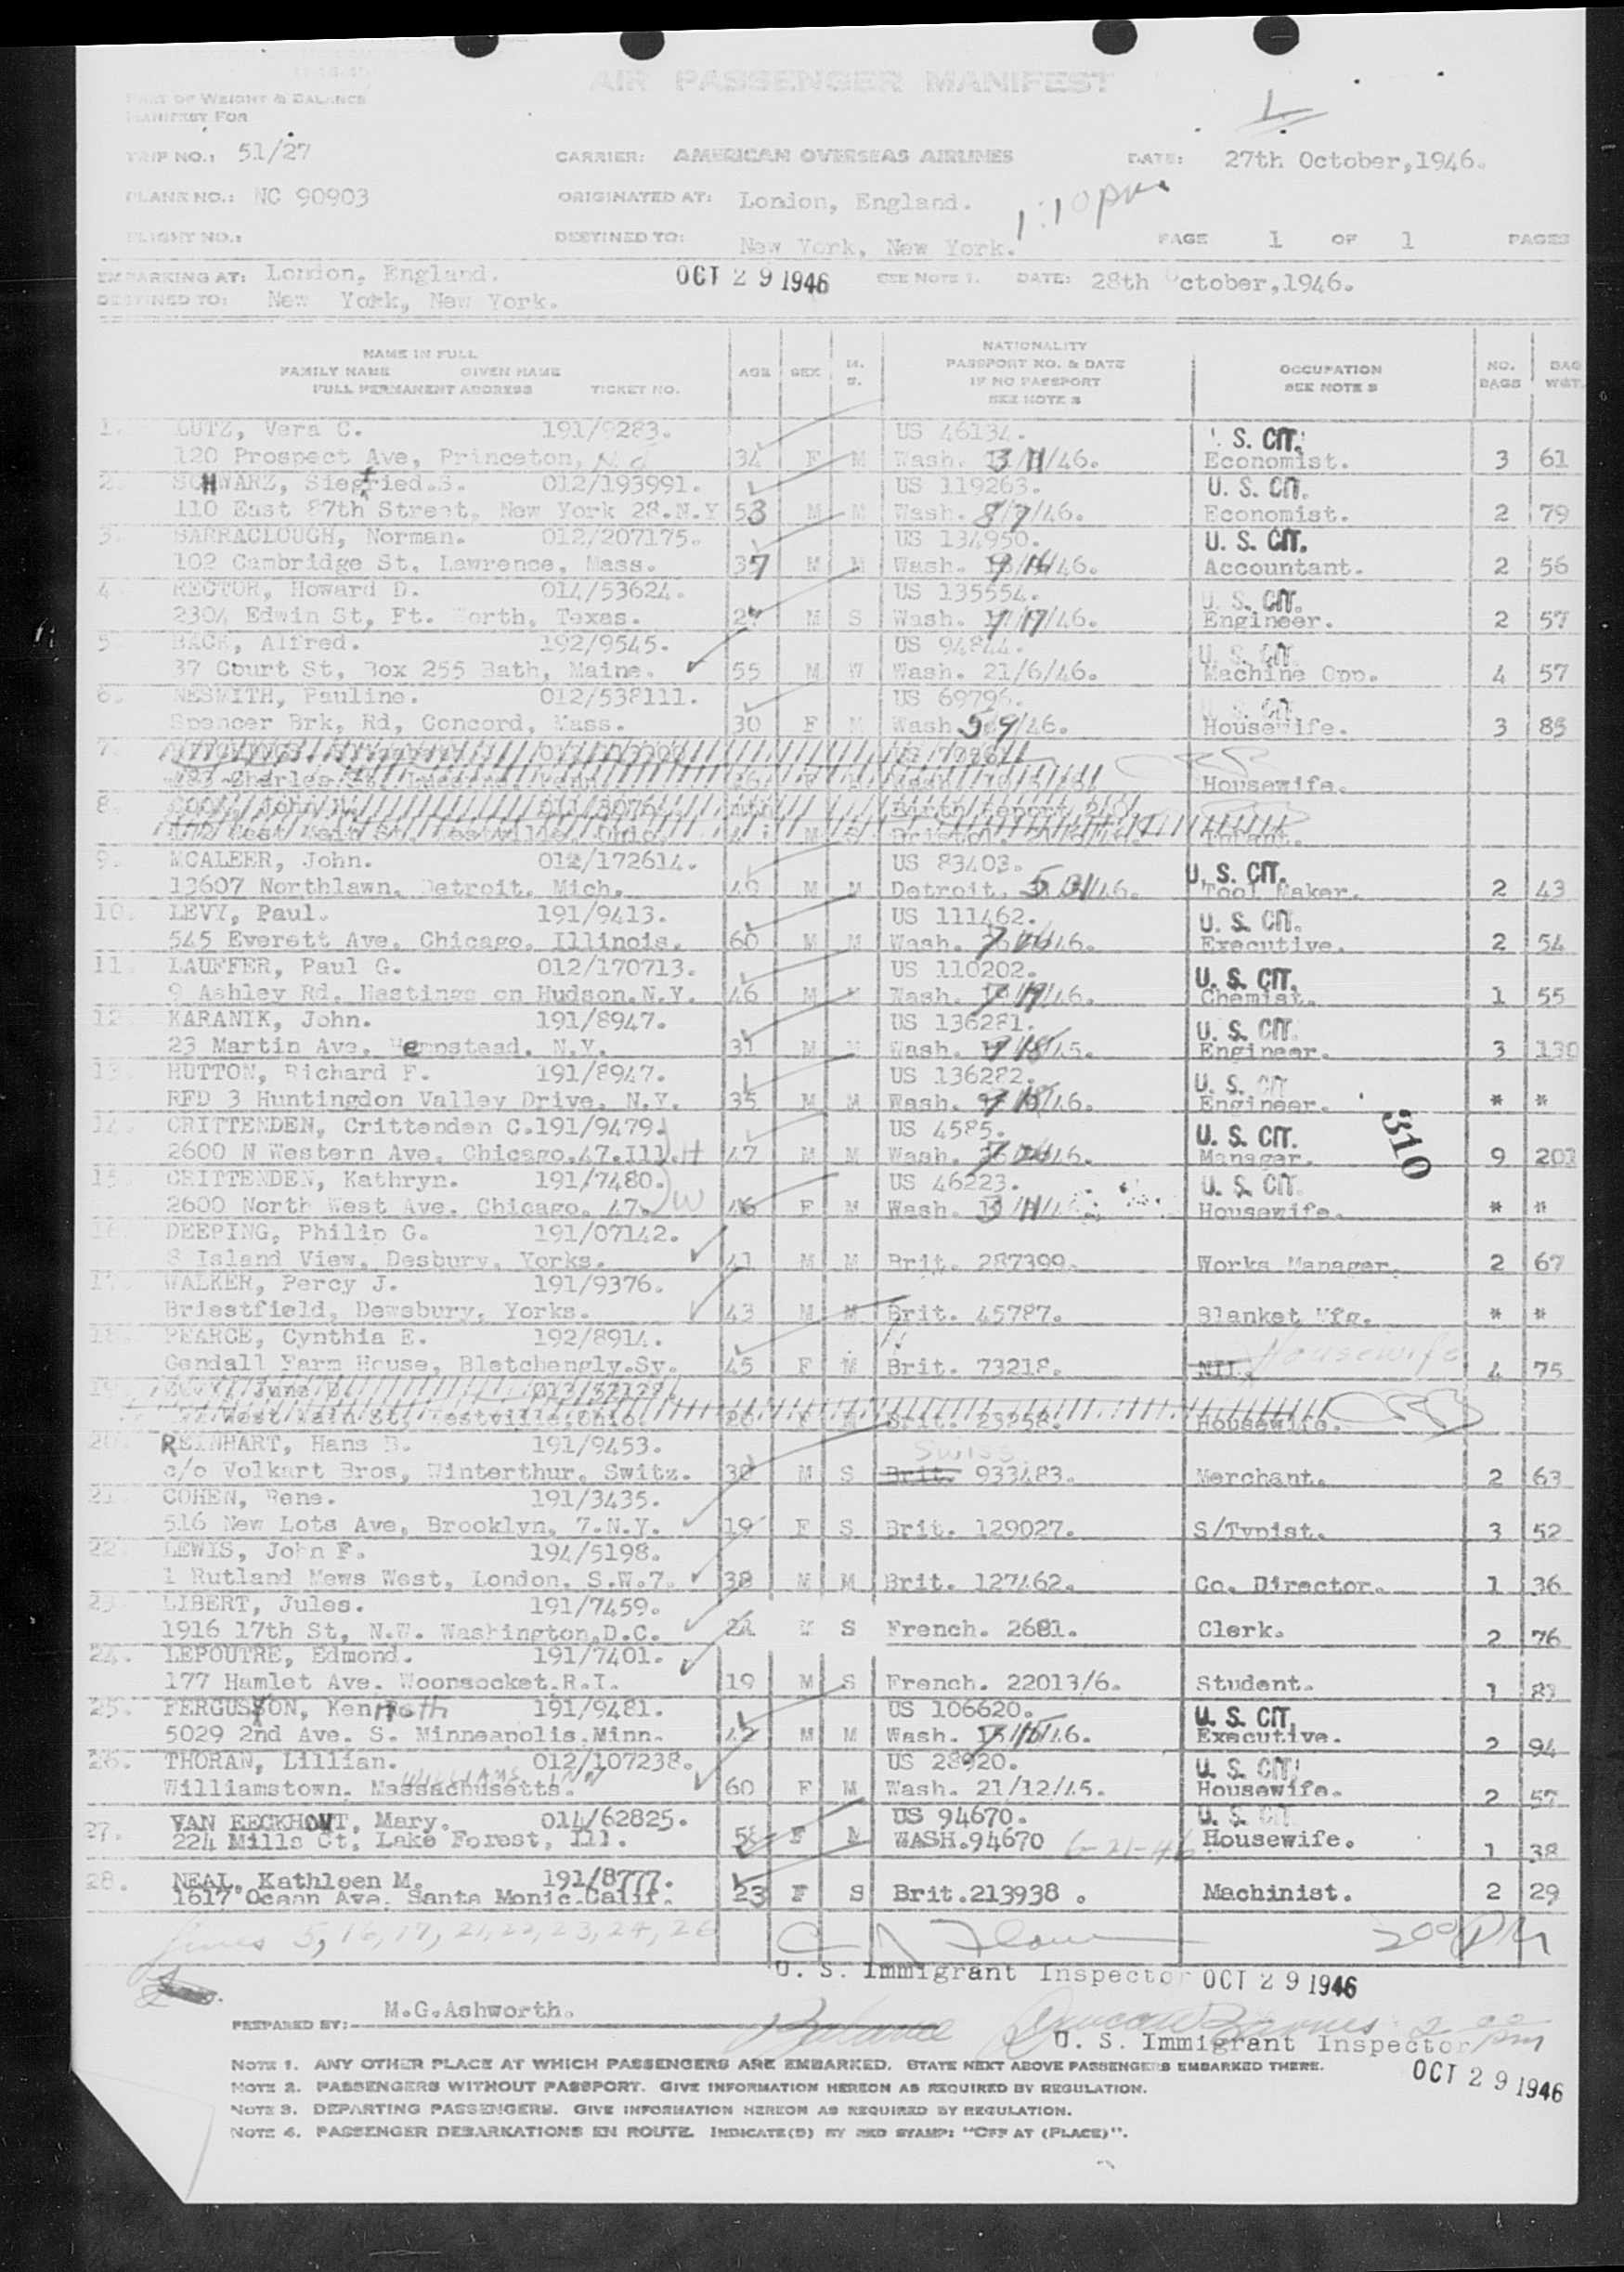 AIR PASSENGER MANIFEST
PART OF WEIGHT & BALANCE
MANIFEST FOR
TRIP NO.: 51/27 CARRIER: AMERICAN OVERSEAS AIRLINES DATE: 27th October,1946.
PLANE NO.: NC 90903 ORIGINATED AT: London, England. 1:10 pm
FLIGHT NO.: DESTINED TO: New York, New York. PAGE 1 OF 1 PAGES
EMBARKING AT: London, England. OCT 29 1946 SEE NOTE 1. DATE: 28th ctober,1946.
DESTINED TO: New York, New York.
NAME IN FULL
FAMILY NAME GIVEN NAME
FULL PERMANENT ADDRESS TICKET NO.
AGE SEX M. S.
NATIONALITY
PASSPORT NO. & DATE
IF NO PASSPORT
SEE NOTE 2
OCCUPATION
SEE NOTE 3
NO. BAGS
BAG WGT.
1. LUTZ, Vera C. 191/9283. US 46134. U. S. CIT.
120 Prospect Ave, Princeton, NJ 34 F M Wash. /11/46. Economist. 3 61
2. SCHWARZ, Siegfried.S. 012/193991. US 119263. U. S. CIT.
110 East 87th Street, New York 28.N.Y 53 M M Wash. 8/7/46. Economist. 2 79
3. BARRACLOUGH, Norman. 012/207175. US 134950. U. S. CIT.
102 Cambridge St, Lawrence, Mass. 37 M M Wash. 9/16/46. Accountant. 2 56
4. RECTOR, Howard D. 014/53624. US 135554. U. S. CIT.
2304 Edwin St, Ft. orth, Texas. 27 M S Wash. /17/46. Engineer. 2 57
5. BACK, Alfred. 192/9545. US 94844. U. S. CIT.
37 Court St, Box 255 Bath, Maine. 55 M W Wash. 21/6/46. Machine Opp. 4 57
6. NESMITH, Pauline. 012/538111. US 69796. U. S. CIT.
Spencer Brk, Rd, Concord, Mass. 30 F M Wash. 5/9/46. Housewife. 3 85
7.
Charles St, Housewife.
8. John
West Main St, Ohio. M S Infant.
9. MCALEER, John. 012/172614. US 83403. U. S. CIT.
13607 Northlawn, Detroit, Mich. 49 M M Detroit. 5/31/46. Tool Maker. 2 43
10. LEVY, Paul. 191/9413. US 111462. U. S. CIT.
545 Everett Ave, Chicago, Illinois. 60 M M Wash. 7/26/46. Executive. 2 54
11. LAUFFER, Paul G. 012/170713. US 110202. U. S. CIT.
9 Ashley Rd, Hastings on Hudson.N.Y. 46 M M Wash. 7/19/46. Chemist. 1 55
12. KARANIK, John. 191/8947. US 136281. U. S. CIT.
23 Martin Ave, Hempstead, N.Y. 31 M M Wash. 9/18/45. Engineer. 3 130
13. HUTTON, Richard F. 191/8947. US 136282. U. S. CIT
RFD 3 Huntingdon Valley Drive, N.Y. 35 M M Wash. 9/18/46. Engineer. * *
310
14. CRITTENDEN, Crittenden C.191/9479. US 4585. U. S. CIT.
2600 N Western Ave, Chicago.47.Ill. H 47 M M Wash. 7/26/46. Manager. 9 203
15. CRITTENDEN, Kathryn. 191/7480. US 46223. U. S. CIT.
2600 North West Ave. Chicago. 47. W 46 F M Wash. /11/4 Housewife. * *
16. DEEPING, Philip G. 191/07142.
8 Island View, Desbury, Yorks. 41 M M Brit. 287399. Works Manager. 2 67
17. WALKER, Percy J. 191/9376.
Briestfield, Dewsbury, Yorks. 43 M M Brit. 45787. Blanket Mfg. * *
18. PEARCE, Cynthia E. 192/8914.
Gendall Farm House, Bletchengly.Sy. 45 F M Brit. 73218. Nil. Housewife 4 75
19. June
West Main St, Westville, Ohio. 20 F M Brit. 23258. Housewife.
20. REINHART, Hans B. 191/9453. Swiss
c/o Volkart Bros, Winterthur, Switz. 30 M S Brit. 933483. Merchant. 2 63
21. COHEN, Rene. 191/3435.
516 New Lots Ave, Brooklyn, 7.N.Y. 19 F S Brit. 129027. S/Typist. 3 52
22. LEWIS, John F. 194/5198.
1 Rutland Mews West, London, S.W.7. 38 M M Brit. 127462. Co. Director. 1 36
23. LIBERT, Jules. 191/7459.
1916 17th St, N.W. Washington,D.C. 21 M S French. 2681. Clerk. 2 76
24. LEPOUTRE, Edmond. 191/7401.
177 Hamlet Ave. Woonsocket.R.I. 19 M S French. 22013/6. Student. 1 83
25. FERGUSON, Kenneth 191/9481. US 106620. U. S. CIT.
5029 2nd Ave. S. Minneapolis.Minn. 42 M M Wash. /15/46. Executive. 2 94
26. THORAN, Lillian. 012/107238. US 28920. U. S. CIT.
WILLIAMS INN
Williamstown. Massachusetts. 60 F M Wash. 21/12/45. Housewife. 2 57
27. VAN EECKHOUT, Mary. 014/62825. US 94670. U. S. CIT
224 Mills Ct, Lake Forest, Ill. 58 F M WASH.94670 6-21-46 Housewife. 1 38
28. NEAL, Kathleen M. 191/8777.
1617 Ocean Ave. Santa Monic.Calif. 23 F S Brit.213938 . Machinist. 2 29
Lines 5, 16, 17, 21, 22, 23, 24, 26
200 PM
U. S. Immigrant Inspector OCT 29 1946
PREPARED BY: M.G.Ashworth.
Balance
U. S. Immigrant Inspector
2 00 pm
OCT 29 1946
NOTE 1. ANY OTHER PLACE AT WHICH PASSENGERS ARE EMBARKED. STATE NEXT ABOVE PASSENGERS EMBARKED THERE.
NOTE 2. PASSENGERS WITHOUT PASSPORT. GIVE INFORMATION HEREON AS REQUIRED BY REGULATION.
NOTE 3. DEPARTING PASSENGERS. GIVE INFORMATION HEREON AS REQUIRED BY REGULATION.
NOTE 4. PASSENGER DEBARKATIONS EN ROUTE. INDICATE(D) BY RED STAMP: "OFF AT (PLACE)".